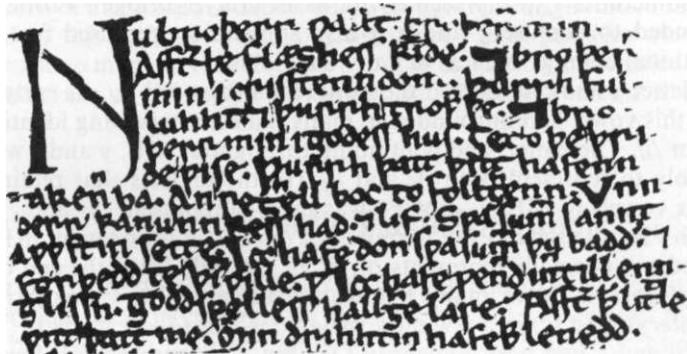 Nu broþerr wallterr. broþerr min.
Affterr þe flæshess kinde. ⁊ broþerr
min i crisstenndom. þurrh ful
luhht. ⁊ þurrh trowwþe. ⁊ broþerr
min i godess hus. ȝet o
þe þride wise. þurrh þatt witt hafenn
takenn ba. An reȝhellboc to follȝhenn. Unn
derr kanunnkess had. ⁊ lif. Swa summ sannt
Awwstin sette. Icc hafe don swa summ þu badd. ⁊
forþedd te þin wille. Icc hafe wennd inntill enn
glissh. goddspelless hallȝhe lare. Affterr þatt little
witt þatt me. min drihhtin hafeþþ lenedd.